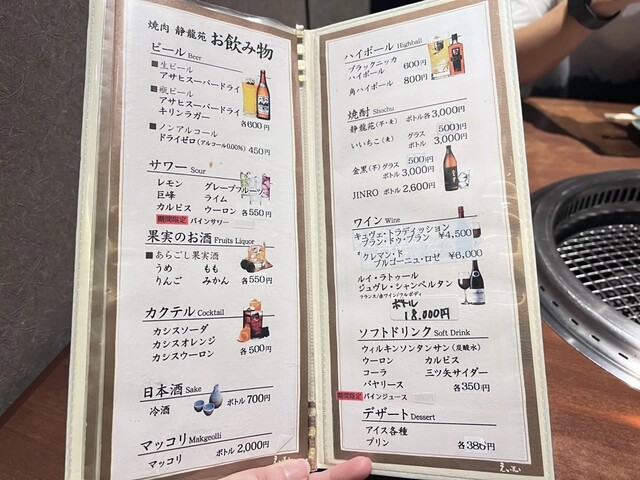 焼肉 静龍苑 お飲み物
ビール Beer
■生ビール
アサヒスーパードライ
■瓶ビール
アサヒスーパードライ
キリンラガー
各600円
■ノンアルコール
ドライゼロ(アルコール0.00%) 450円
サワー Sour
レモン グレープフルーツ
巨峰 ライム
カルピス ウーロン 各550円
期間限定 パインサワー
果実のお酒 Fruits Liquor
■あらごし果実酒
うめ もも
りんご みかん 各550円
カクテル Cocktail
カシスソーダ
カシスオレンジ
カシスウーロン 各500円
日本酒 Sake
冷酒 ボトル 700円
マッコリ Makgeolli
マッコリ ボトル 2,000円
ハイボール Highball
ブラックニッカ
ハイボール 600円
角ハイボール 800円
焼酎 Shochu
静龍苑(芋・麦) ボトル各3,000円
いいちこ(麦) グラス 500円
ボトル 3,000円
金黒(芋) グラス 500円
ボトル 3,000円
JINRO ボトル 2,600円
ワイン Wine
キュヴェ・トラディッション
ブラン・ドゥ・ブラン ¥4,500
クレマン・ド
ブルゴーニュ・ロゼ ¥6,000
ルイ・ラトゥール
ジュヴレ・シャンベルタン
フランス/赤ワイン/フルボディ
ボトル
18,000円
ソフトドリンク Soft Drink
ウィルキンソンタンサン(炭酸水)
ウーロン カルピス
コーラ 三ツ矢サイダー
バヤリース 各350円
期間限定 パインジュース
デザート Dessert
アイス各種
プリン 各385円